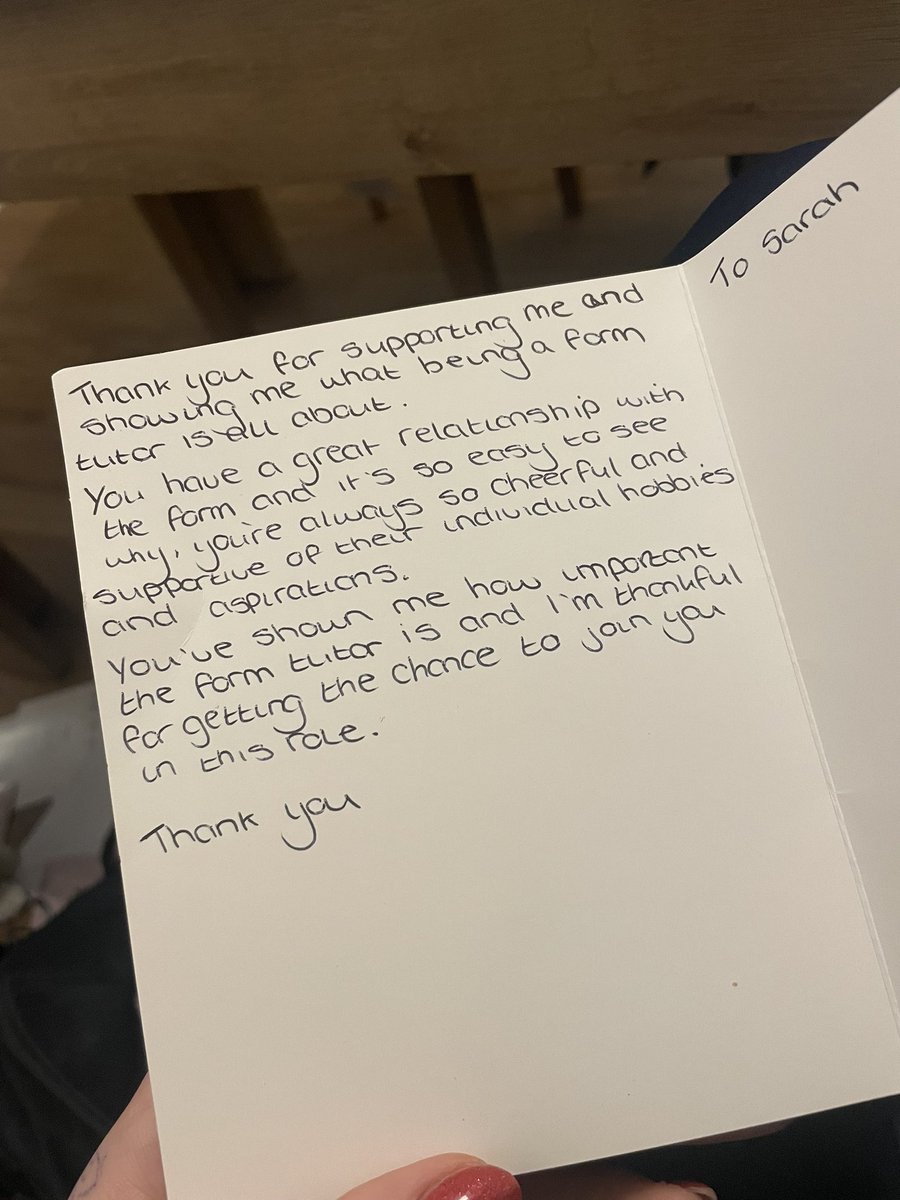 Thank you for supporting me and
showing me what being a form
tutor is all about.
You have a great relationship with
the form and it's so easy to see
why, you're always so cheerful and
supportive of their individual hobbies
and aspirations.
You've shown me how important
the form tutor is and I'm thankful
for getting the chance to join you
in this role.
Thank you
To Sarah